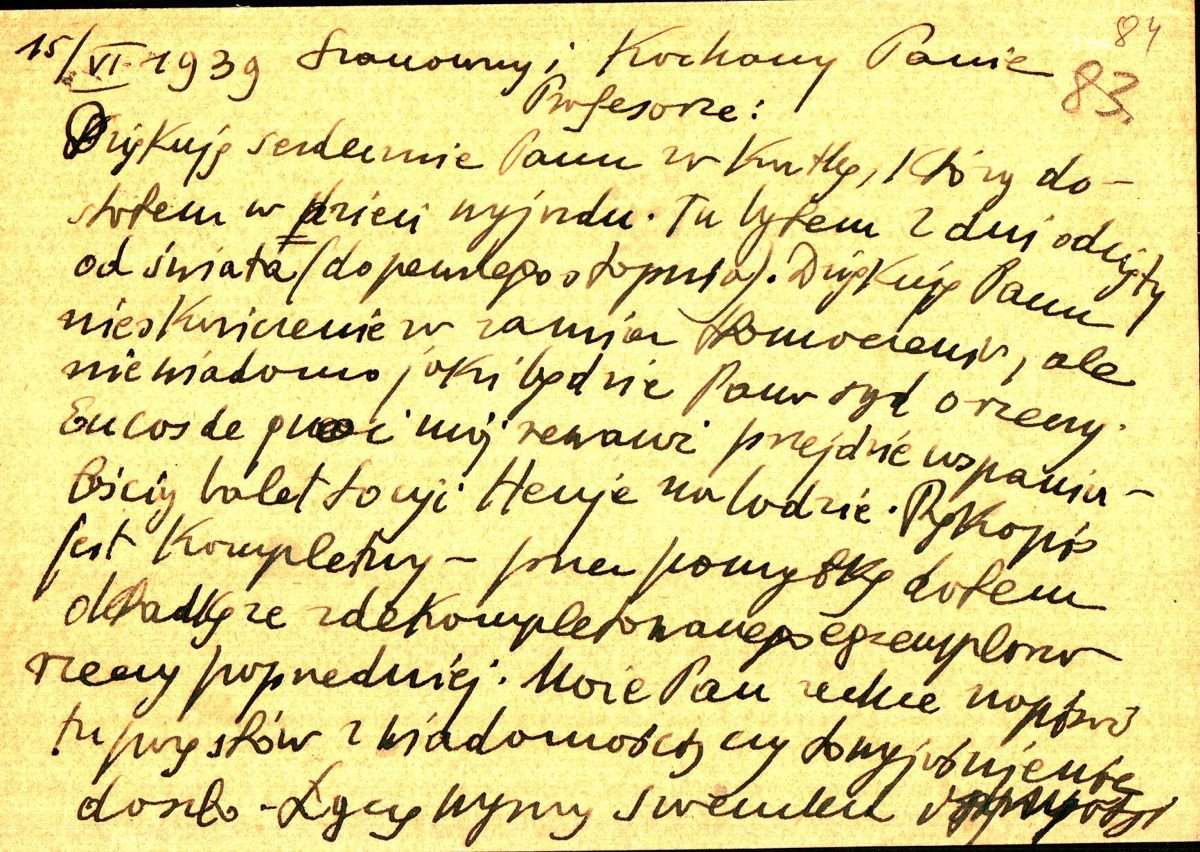 84
15/VI 1939 Szanowny i Kochany Panie
83.
Profesorze:
Dziękuję serdecznie Panu za kartkę, którą do-
stałem w dzień wyjazdu. Tu byłem 2 dni odcięty
od świata (do pewnego stopnia). Dziękuję Panu
nieskończenie za zamiar tłomoczenia, ale
niewiadomo jaki będzie Pana sąd o rzeczy.
Encos de puees i mój rewanż przejdzie wspania-
łością balet Łocyji Heuje na lodzie. Rękopis
jest kompletny – przez pomyłkę dałem
okładkę ze zdekompletowanego egzemplarza
rzeczy poprzedniej. Może Pan zechce napisać
tu parę słów z wiadomością czy to wyjaśnienie
doszło – Łączę wyrazy szacunku i